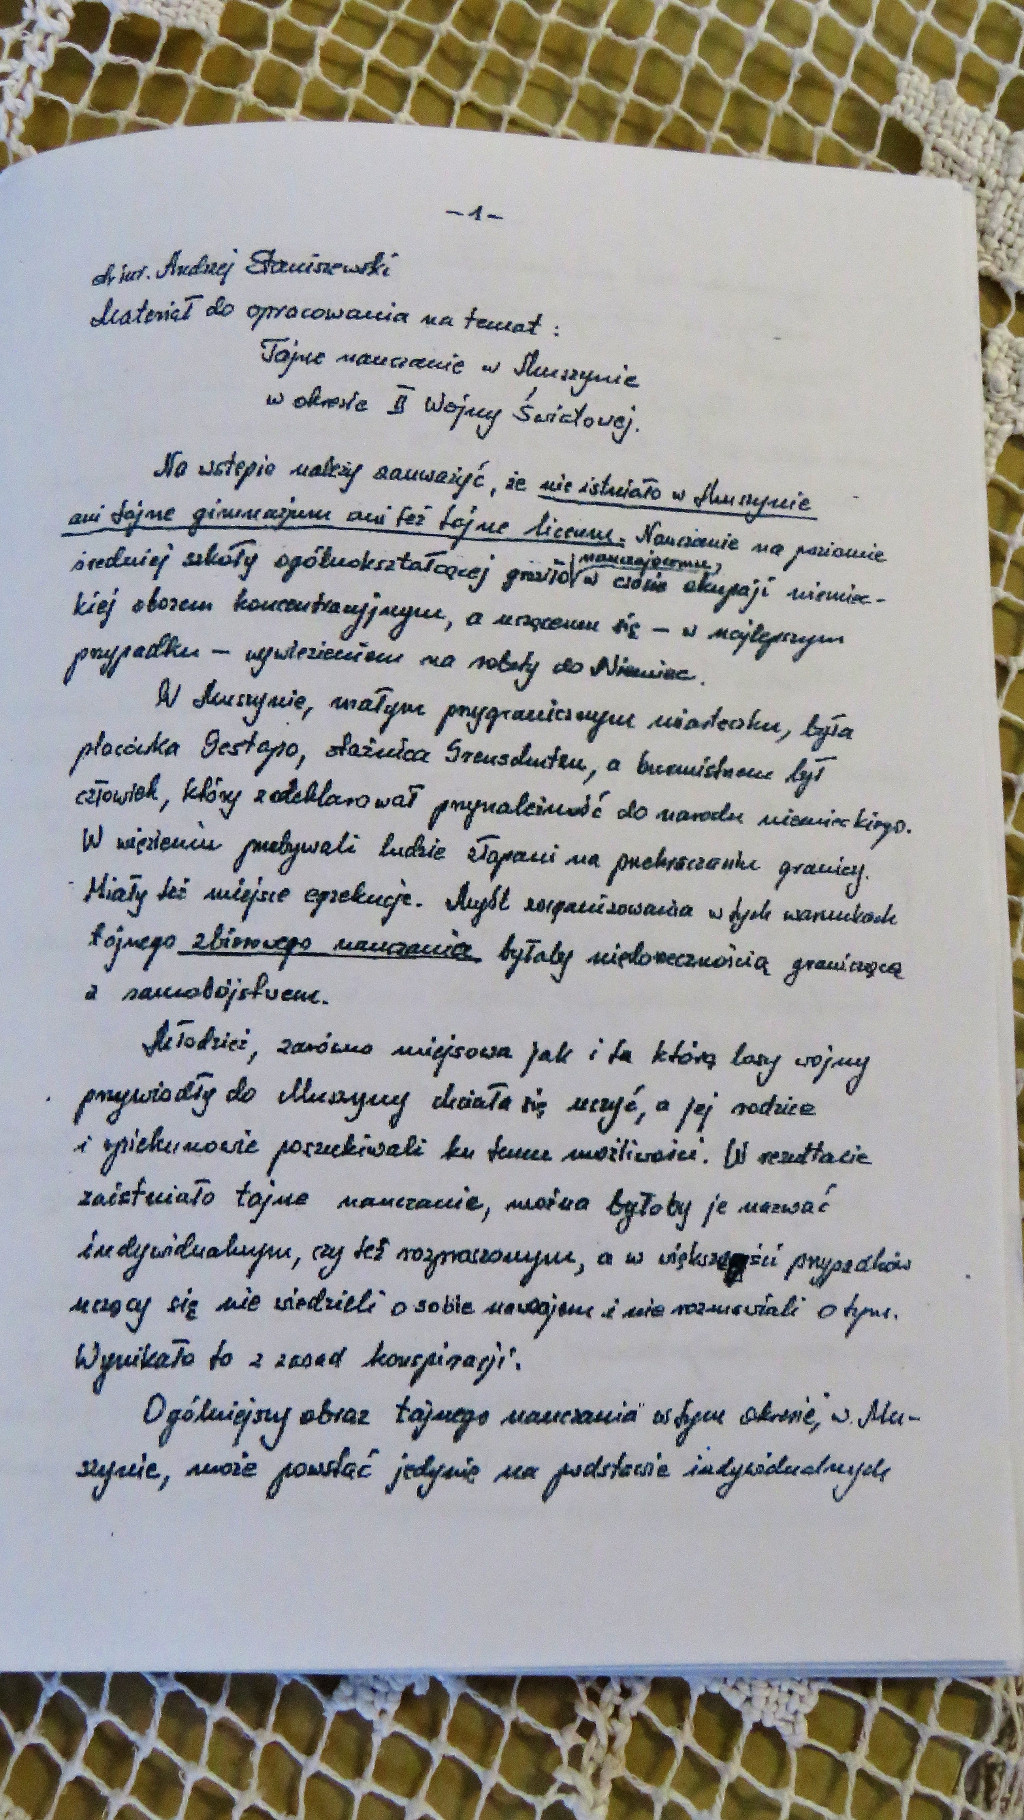 -1-
dr inż. Andrzej Staniszewski
Materiał do opracowania na temat :
Tajne nauczanie w Muszynie
w okresie II Wojny Światowej.
Na wstępie należy zauważyć, że nie istniało w Muszynie
ani tajne gimnazjum ani też tajne liceum. Nauczanie na poziomie
nauczającemu,
średniej szkoły ogólnokształcącej groziło w czasie okupacji niemiec-
kiej obozem koncentracyjnym, a uczącemu się – w najlepszym
przypadku – wywiezieniem na roboty do Niemiec.
W Muszynie, małym przygranicznym miasteczku, była
placówka Gestapo, strażnica Grenschutzu, a burmistrzem był
człowiek, który zadeklarował przynależność do narodu niemieckiego.
W więzieniu przebywali ludzie złapani na przekraczaniu granicy.
Miały też miejsce egzekucje. Myśl zorganizowania w tych warunkach
tajnego zbiorowego nauczania byłaby niedorzecznością graniczącą
z samobójstwem.
Młodzież, zarówno miejscowa jak i ta którą losy wojny
przywiodły do Muszyny chciała się uczyć, a jej rodzice
i opiekunowie poszukiwali ku temu możliwości. W rezultacie
zaistniało tajne nauczanie, można byłoby je nazwać
indywidualnym, czy też rozproszonym, a w większości przypadków
uczący się nie wiedzieli o sobie nawzajem i nie rozmawiali o tym.
Wynikało to z zasad konspiracji.
Ogólniejszy obraz tajnego nauczania w tym okresie, w Mu-
szynie, może powstać jedynie na podstawie indywidualnych